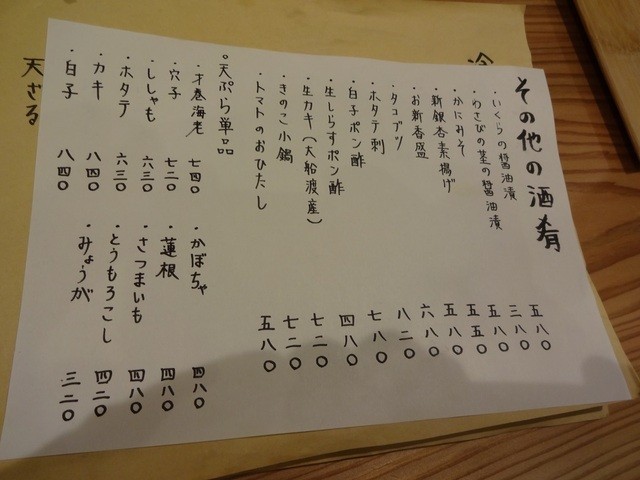 その他の酒肴
・いくらの醤油漬 五八〇
・わさびの茎の醤油漬 三八〇
・かにみそ 五八〇
・新銀杏素揚げ 五五〇
・お新香盛 五八〇
・タコブツ 六八〇
・ホタテ刺 八二〇
・白子ポン酢 七八〇
・生しらすポン酢 四八〇
・生カキ(大船渡産) 七二〇
・きのこ小鍋 七二〇
・トマトのおひたし 五八〇
○天ぷら単品
・才巻海老 七四〇
・穴子 七二〇
・ししゃも 六三〇
・ホタテ 六三〇
・カキ 八四〇
・白子 八四〇
・かぼちゃ 四八〇
・蓮根 四八〇
・さつまいも 四八〇
・とうもろこし 四二〇
・みょうが 三二〇
天ざる